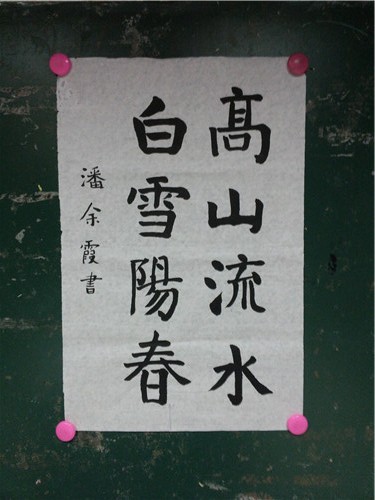 髙山流水
白雪陽春
潘余霞書